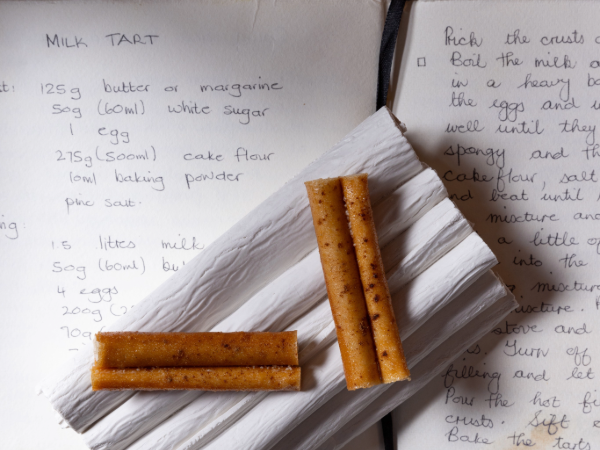 MILK TART
125g butter or margarine
50g (60ml) white sugar
1 egg
275g (500ml) cake flour
10ml baking powder
pinc salt.
1 5 litres milk
50g (60ml)
4 eggs
200g
70g
Prick the crusts
Boil the milk
in a heavy
the eggs and
well until they
spongy and
cake flour, salt
beat until
mixture and
a little
into the
mixture
stove and
Turn off
filling and let
Pour the hot
crusts. Sift
Bake the tarts